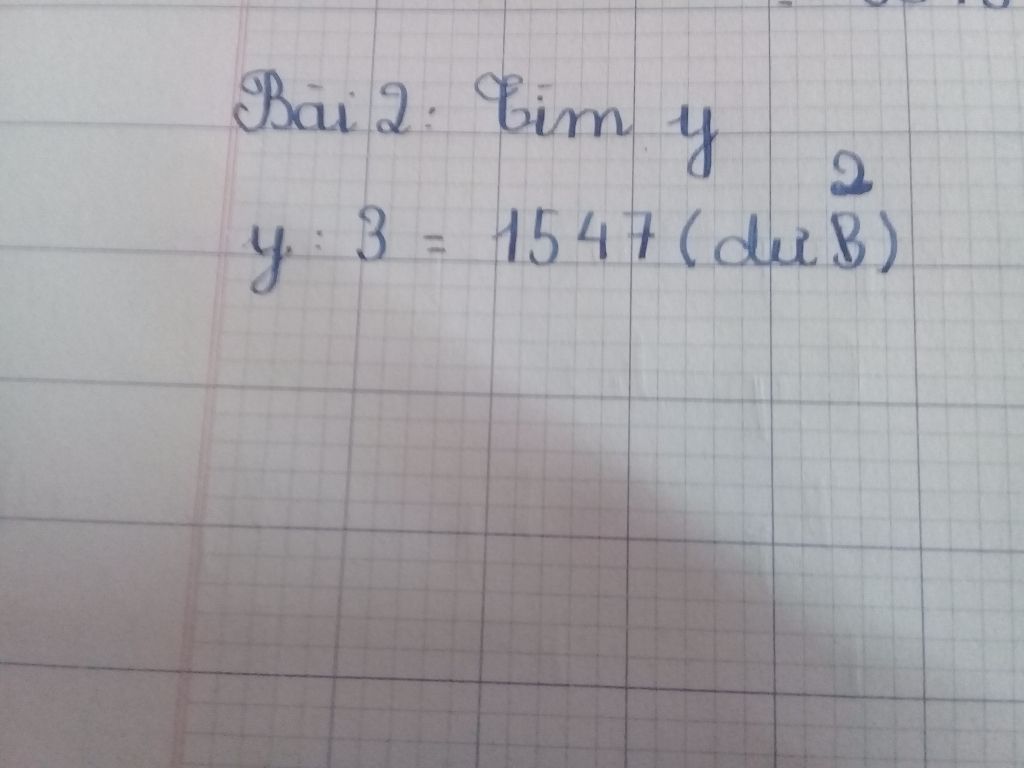 Bài 2: Tìm y
2
y : 3 = 1547 (dư 3)